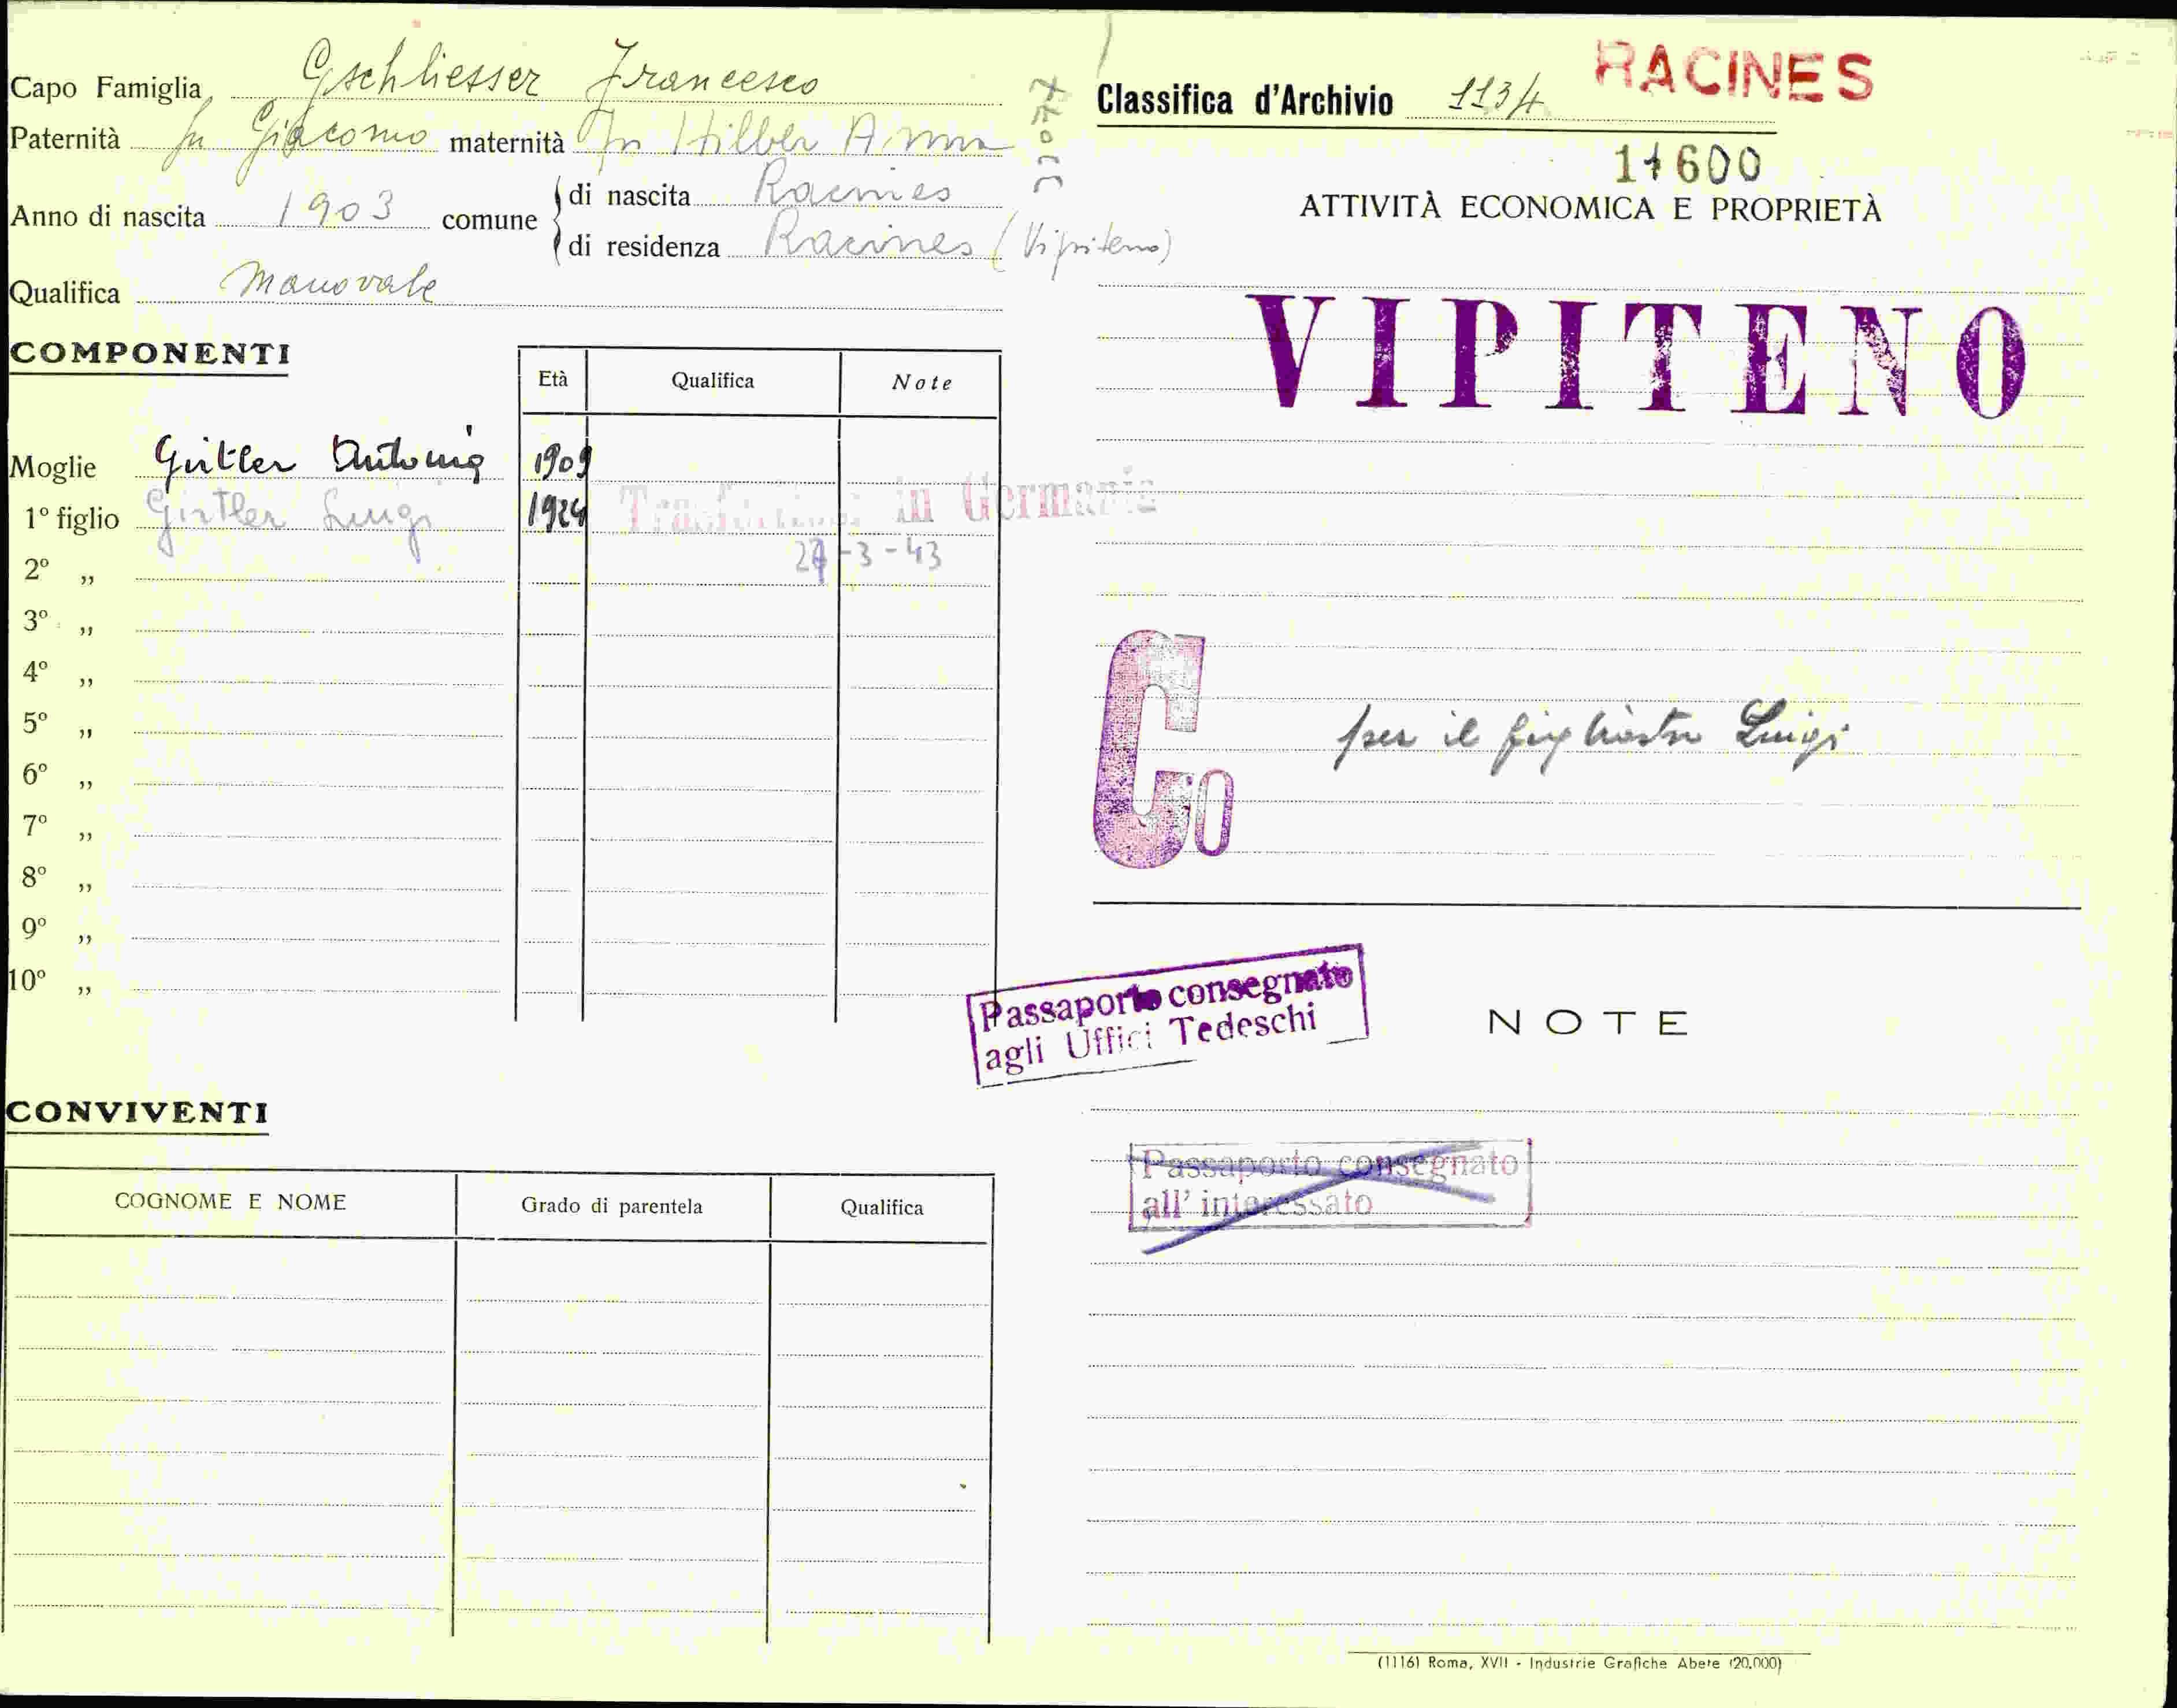 Capo Famiglia Gschliesser Francesco
Paternità fu Giacomo maternità fu Hilber Anna
Anno di nascita 1903 comune di nascita Racines
di residenza Racines (Vipiteno)
Qualifica Manovale
COMPONENTI
Età Qualifica Note
Moglie Girtler Antonia 1909
1º figlio Girtler Luigi 1924 Trasferitosi in Germania
2º „ 27-3-43
3º „
4º „
5º „
6º „
7º „
8º „
9º „
10º „
CONVIVENTI
COGNOME E NOME Grado di parentela Qualifica
Classifica d'Archivio 1134 RACINES
11600
ATTIVITÀ ECONOMICA E PROPRIETÀ
VIPITENO
Co per il figliastro Luigi
Passaporto consegnato
agli Uffici Tedeschi
NOTE
Passaporto consegnato
all' interessato
(1116) Roma, XVII - Industrie Grafiche Abete (20.000)